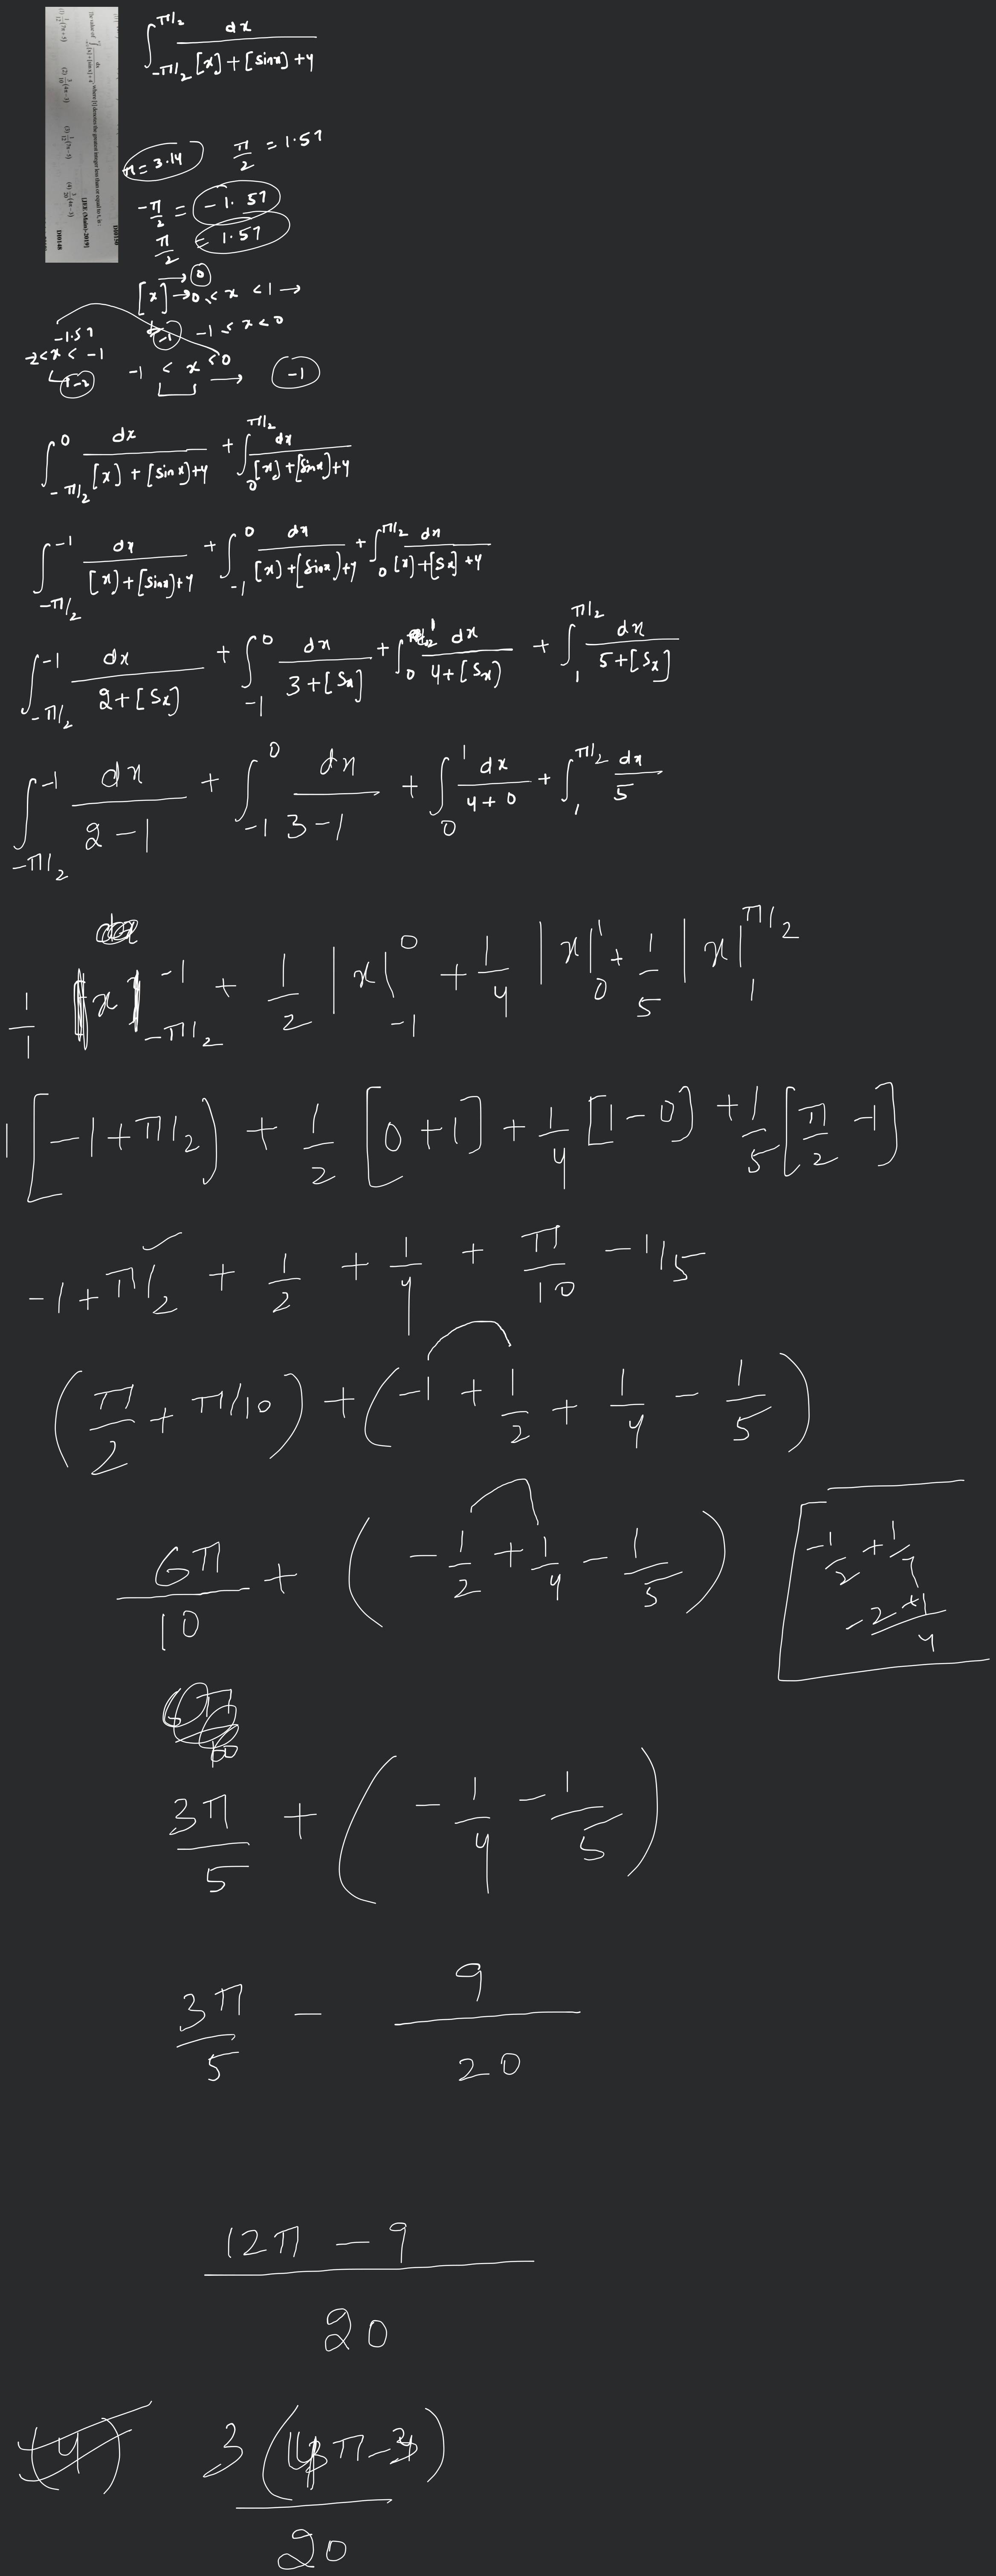 The value of ∫_{-π/2}^{π/2} dx/([x]+[sin x]+4), where [t] denotes the greatest integer less than or equal to t, is :
[JEE (Main)-2019]
(1) 1/12 (7π+5) (2) 3/10 (4π-3) (3) 1/12 (7π-5) (4) 3/20 (4π-3)
∫_{-π/2}^{π/2} dx/([x]+[sinx]+4)
π = 3.14 π/2 = 1.57
-π/2 = -1.57
π/2 = 1.57
[x] → 0 ≤ x < 1 → 0
-1 -1 ≤ x < 0
-1.57
-2 < x < -1
-2
-1 < x < 0 → -1
∫_{-π/2}^{0} dx/([x]+[sinx]+4) + ∫_{0}^{π/2} dx/([x]+[sinx]+4)
∫_{-π/2}^{-1} dx/([x]+[sinx]+4) + ∫_{-1}^{0} dx/([x]+[sinx]+4) + ∫_{0}^{π/2} dx/([x]+[Sx]+4)
∫_{-π/2}^{-1} dx/(2+[Sx]) + ∫_{-1}^{0} dx/(3+[Sx]) + ∫_{0}^{1} dx/(4+[Sx]) + ∫_{1}^{π/2} dx/(5+[Sx])
∫_{-π/2}^{-1} dx/(2-1) + ∫_{-1}^{0} dx/(3-1) + ∫_{0}^{1} dx/(4+0) + ∫_{1}^{π/2} dx/5
1/1 [x]_{-π/2}^{-1} + 1/2 |x|_{-1}^{0} + 1/4 |x|_{0}^{1} + 1/5 |x|_{1}^{π/2}
1[-1+π/2) + 1/2 [0+1] + 1/4 [1-0] + 1/5 [π/2 -1]
-1+π/2 + 1/2 + 1/4 + π/10 - 1/5
(π/2 + π/10) + (-1 + 1/2 + 1/4 - 1/5)
6π/10 + (-1/2 + 1/4 - 1/5)
-1/2 + 1/4
(-2+1)/4
3π/5 + (-1/4 - 1/5)
3π/5 - 9/20
(12π - 9)/20
(4) 3(4π-3)/20